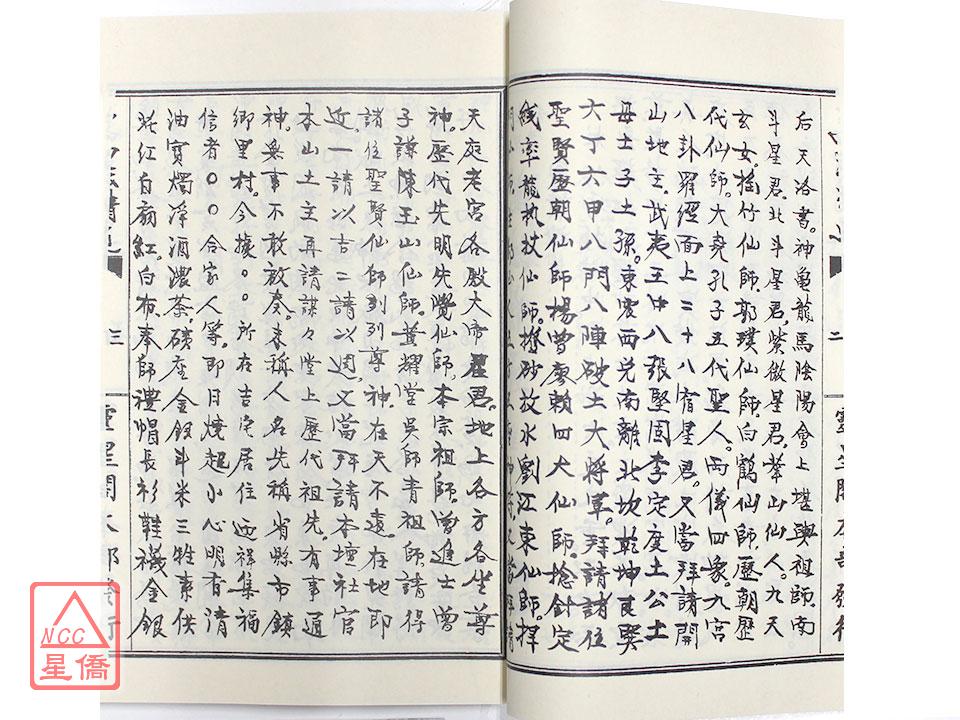 后天洛書。神亀龍馬陰陽會上堪輿祖師。南
斗星君。北斗星君。紫微星君。華山仙人。九天
玄女。搖竹仙師。郭璞仙師。白鶴仙師。歷朝歷
代仙師。大堯孔子五代聖人。兩儀四象。九宮
八卦羅經面上二十八宿星君。又當拜請開
山地主。武夷王中八張堅固李定度土公土
母土子土孫。東震西兌南離北坎乾坤艮巽
六丁六甲八門八陣破土大將軍。拜請諸位
聖賢歷朝仙師楊曾廖賴四大仙師。捻針定
線牽龍执杖仙師。撥砂放水劉江東仙師。擇
天庭老宮各殿大帝星君。地上各方各坐尊
神。歷代先明先覺仙師。本宗祖師曾進士曾
子謙陳玉山仙師。黃耀堂吳師青祖師。請得
諸位聖賢仙師到列尊神。在天不遠。在地即
近。一請以吉二請以週。又當拜請本壇社官
本山土主再請謀々堂上歷代祖先。有事通
神。無事不敢放奏。未稱人名先稱省縣市鎮
鄉里村。今據。。所在吉宅居住迎祥集福
信者。。。合家人等。即日燒起小心明香清
油寶燭淨酒濃茶磺金金銀斗米三牲素供
花紅白頦紅。白布。奉師禮帽長衫鞋襪金銀
二
三
NCC
星僑